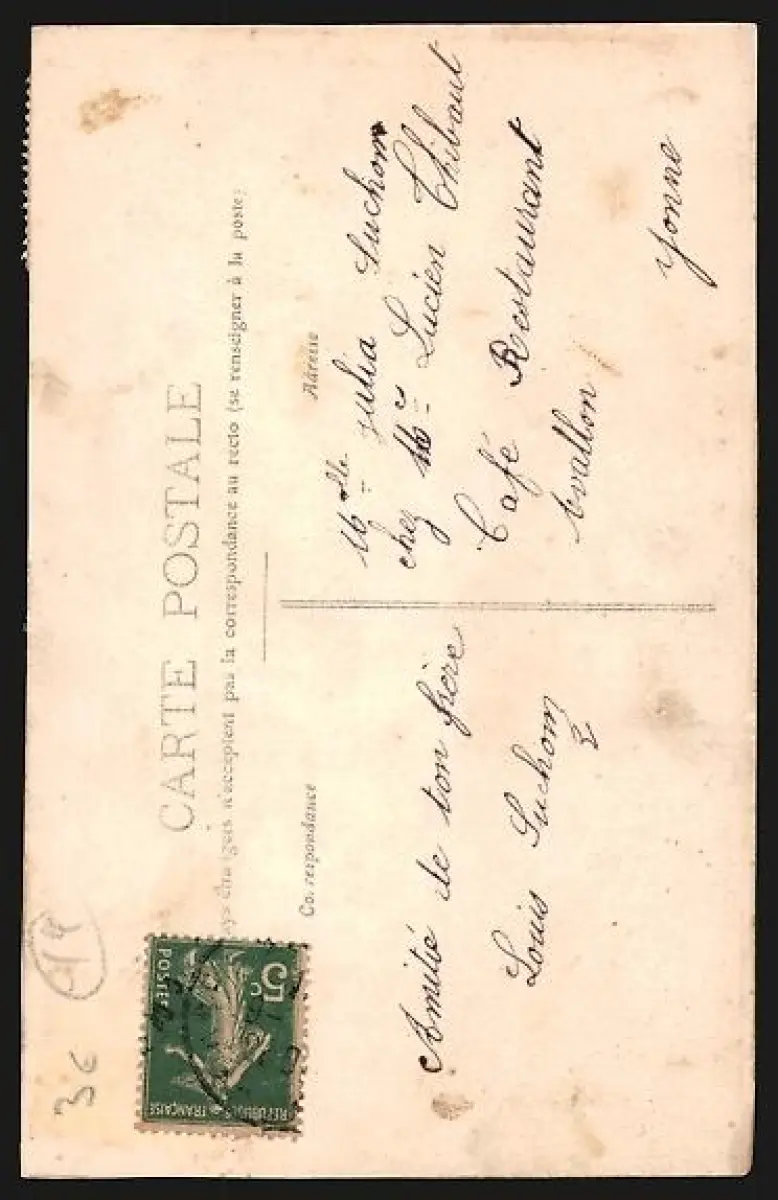 CARTE POSTALE
pays étrangers n'acceptent pas la correspondance au recto (se renseigner à la poste)
Correspondance
Adresse
Amitié de ton frère
Louis Suchom
Melle Julia Suchom
chez Mr Lucien Thibaut
Café Restaurant
Avallon
Yonne
POSTES
5c
REPUBLIQUE FRANÇAISE
3€
14